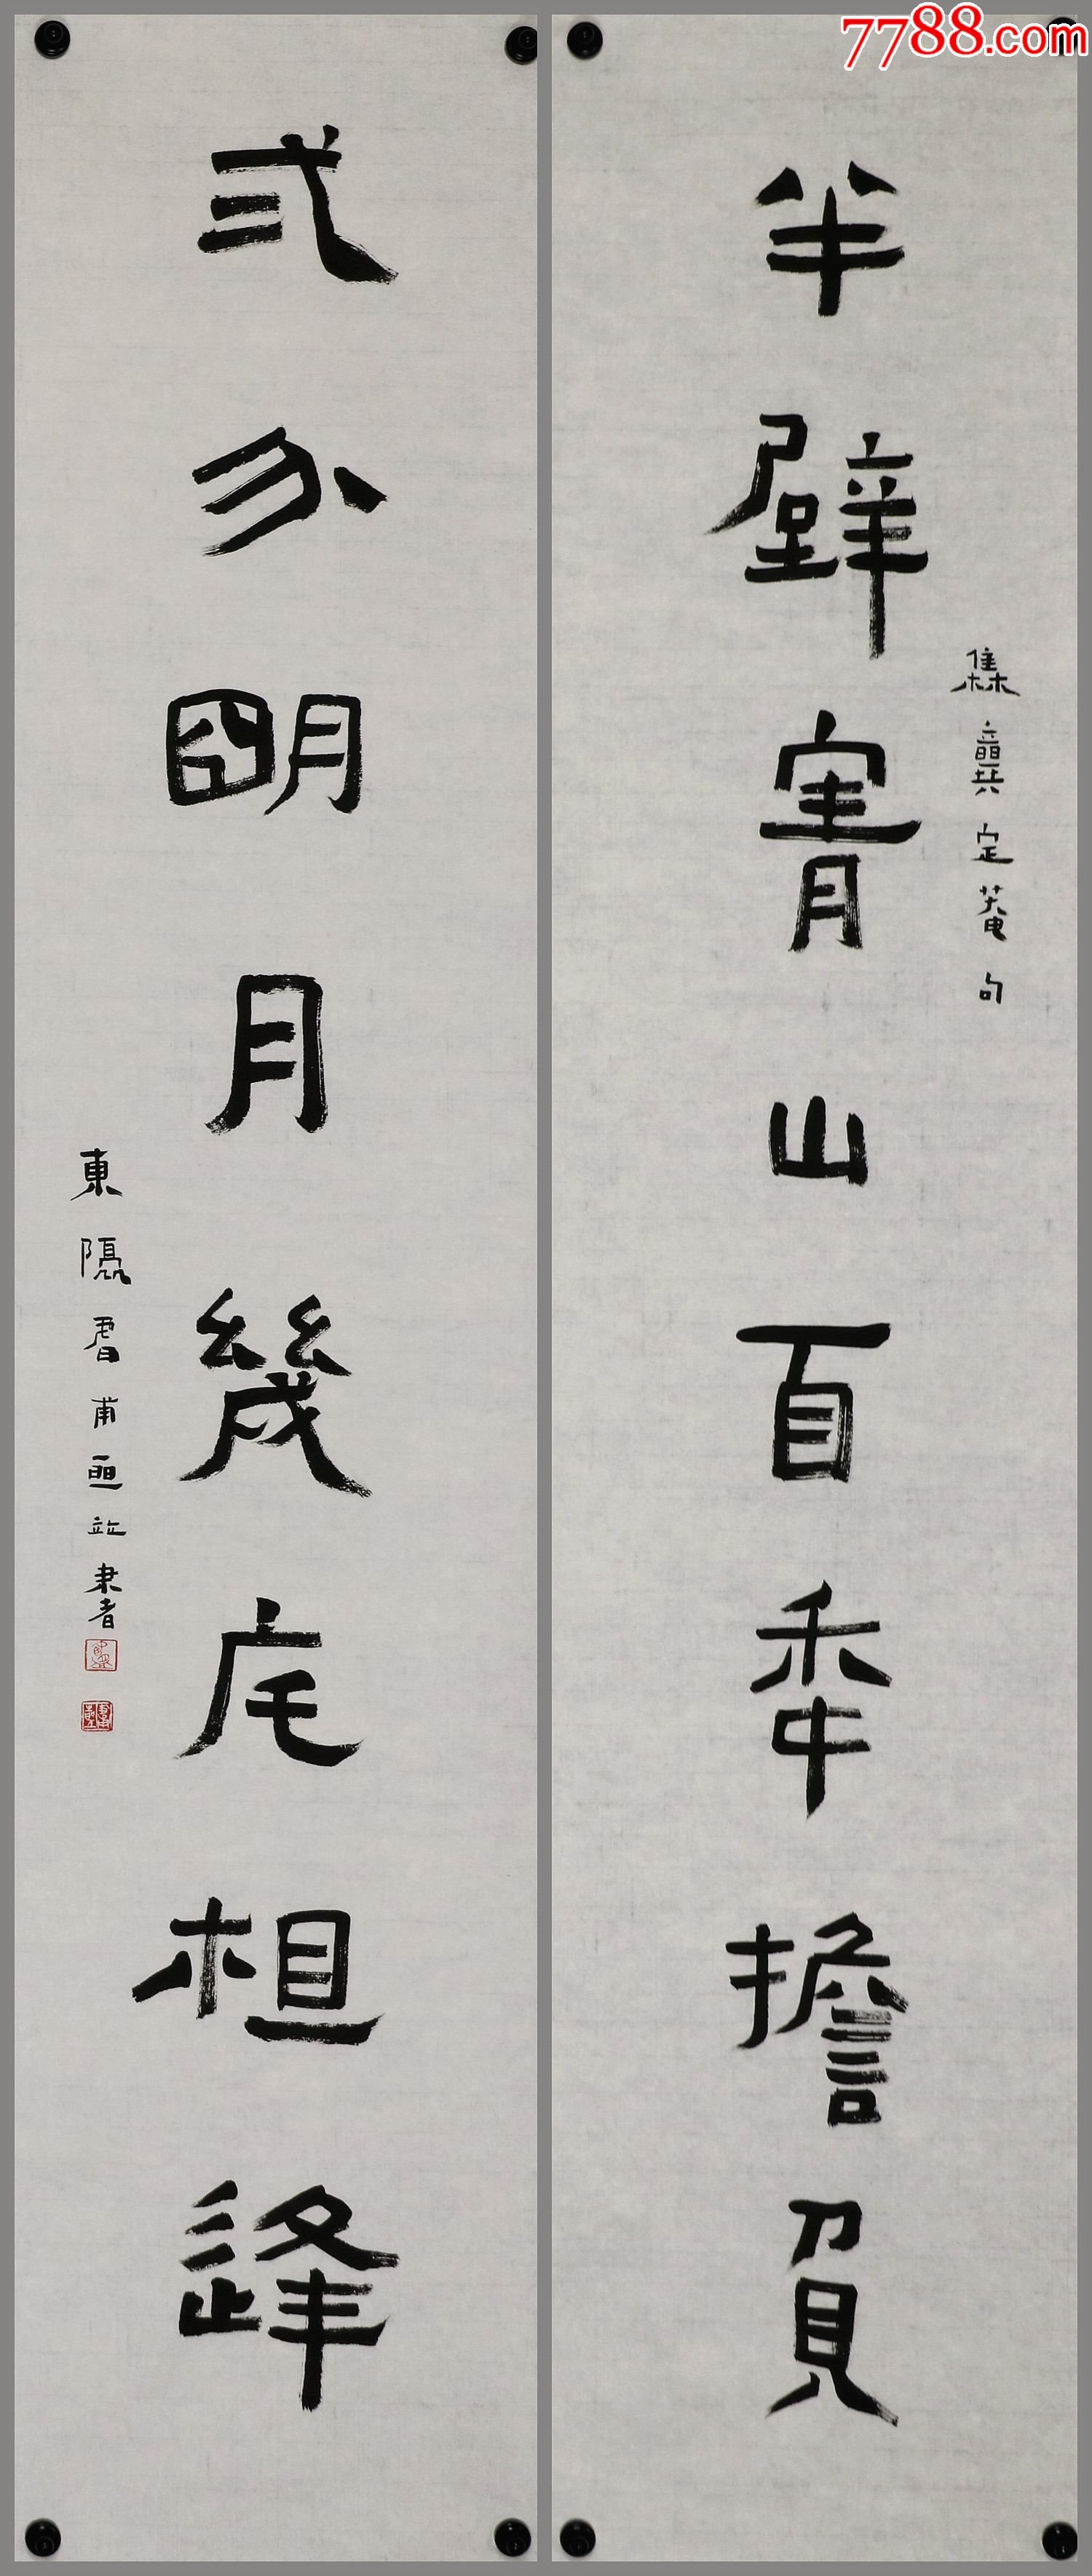 7788.com
半壁青山百年擔負
集龔定菴句
弍分明月幾度相逢
東 甫 書